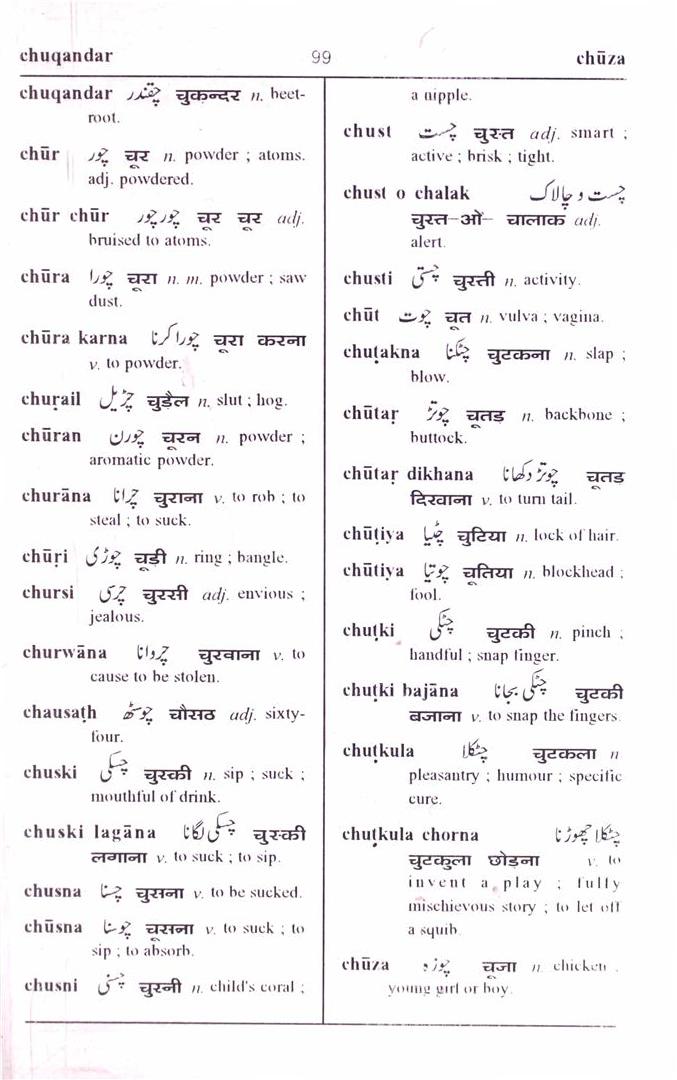 chuqandar 99 chūza
chuqandar چقندر चुकन्दर n. beet-
root.
chūr چور चूर n. powder ; atoms.
adj. powdered.
chūr chūr چور چور चूर चूर adj.
bruised to atoms.
chūra چورا चूरा n. m. powder ; saw
dust.
chūra karna چورا کرنا चूरा करना
v. to powder.
chuṛail چڑیل चुड़ैल n. slut ; hog.
chūran چورن चूरन n. powder ;
aromatic powder.
churāna چرانا चुराना v. to rob ; to
steal ; to suck.
chūṛi چوڑی चूड़ी n. ring ; bangle.
chursi چرسی चुरसी adj. envious ;
jealous.
churwāna چروانا चुरवाना v. to
cause to be stolen.
chausaṭh چوسٹھ चौसठ adj. sixty-
four.
chuski چسکی चुस्की n. sip ; suck ;
mouthful of drink.
chuski lagāna چسکی لگانا चुस्की
लगाना v. to suck ; to sip.
chusna چسنا चुसना v. to be sucked.
chūsna چوسنا चूसना v. to suck ; to
sip ; to absorb.
chusni چسنی चुस्नी n. child's coral ;
a nipple.
chust چست चुस्त adj. smart ;
active ; brisk ; tight.
chust o chalak چست و چالاک
चुस्त-ओं- चालाक adj.
alert.
chusti چستی चुस्ती n. activity.
chūt چوت चूत n. vulva ; vagina.
chuṭakna چٹکنا चुटकना n. slap ;
blow.
chūtaṛ چوتڑ चूतड़ n. backbone ;
buttock.
chūtaṛ dikhana چوتڑ دکھانا चूतड़
दिखाना v. to turn tail.
chūṭiya چٹیا चुटिया n. lock of hair.
chūtiya چوتیا चूतिया n. blockhead ;
fool.
chuṭki چٹکی चुटकी n. pinch ;
handful ; snap finger.
chuṭki bajāna چٹکی بجانا चुटकी
बजाना v. to snap the fingers.
chuṭkula چٹکلا चुटकला n
pleasantry ; humour ; specific
cure.
chuṭkula chorna چٹکلا چھوڑنا
चुटकुला छोड़ना v. to
invent a play ; fully
mischievous story ; to let off
a squib.
chūza چوزہ चूजा n. chicken .
young girl or boy.